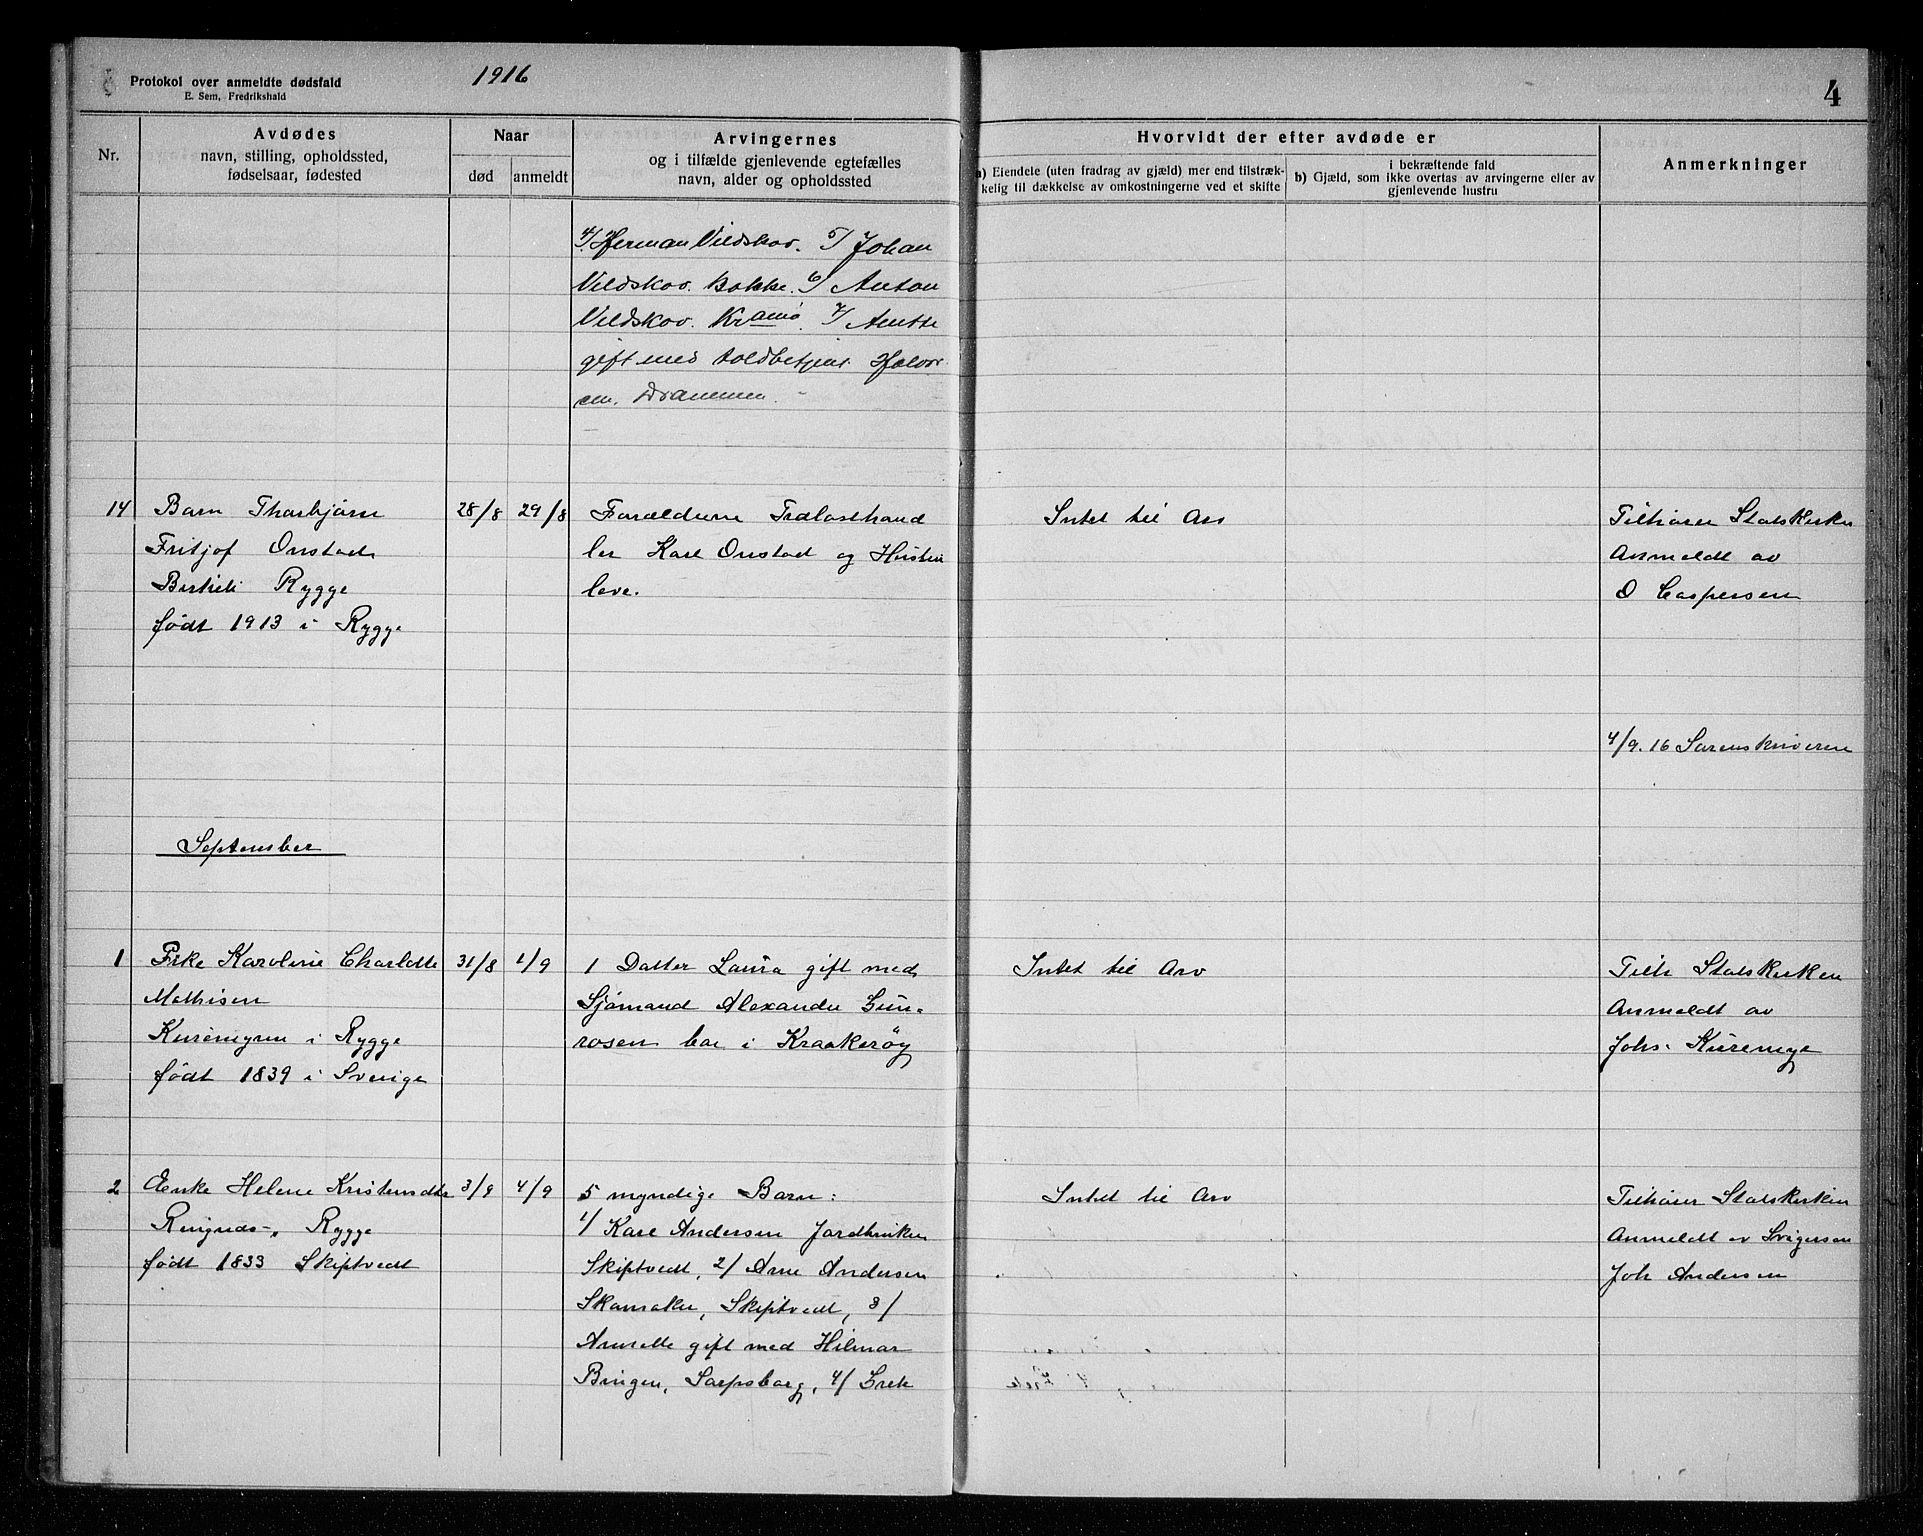 Protokol over anmeldte dødsfald
E. Sem, Fredrikshald
1916
4
Nr.
Avdødes
navn, stilling, opholdssted,
fødselsaar, fødested
Naar
død
anmeldt
Arvingernes
og i tilfælde gjenlevende egtefælles
navn, alder og opholdssted
Hvorvidt der efter avdøde er
a) Eiendele (uten fradrag av gjæld) mer end tilstræk-
kelig til dækkelse av omkostningerne ved et skifte
i bekræftende fald
b) Gjæld, som ikke overtas av arvingerne eller av
gjenlevende hustru
Anmerkninger
4/ Herman Vildskov. 5/ Johan
Vildskov. Bakke. 6/ Anton
Vildskov. Kr.ania. 7/ Anette
gift med toldbetjent Halvor
sen. Drammen.
14
Barn Thorbjørn
Fritjof Onstad
Birkeli Rygge
født 1913 i Rygge
28/8
29/8
Forældrene Trælasthand
ler Karl Onstad og Hustru
lever.
Intet til Arv
Tilhører Statskirken
Anmeldt av
O Caspersen
4/9. 16 Sorenskriveren
September
1
Pike Karoline Charlotte
Mathisen
Kuremyren i Rygge
født 1839 i Sverige
31/8
1/9
1 Datter Laura gift med
Sjømand Alexander Gun-
rosen bor i Kraakerøy
Intet til Arv
Tilh Statskirken
Anmeldt av
Johs. Kuremyr
2
Enke Helene Kristensdtr
Rygge
født 1833 Skiptvedt
3/9
4/9
5 myndige Barn:
1/ Karl Andersen Jordbruker
Skiptvedt, 2/ Arne Andersen
Skamaker, Skiptvedt, 3/
Annette gift med Hilmar
Bingen, Sarpsborg, 4/ Grete
Intet til Arv
Tilhører Statskirken
Anmeldt av Svigersøn
Joh Andersen